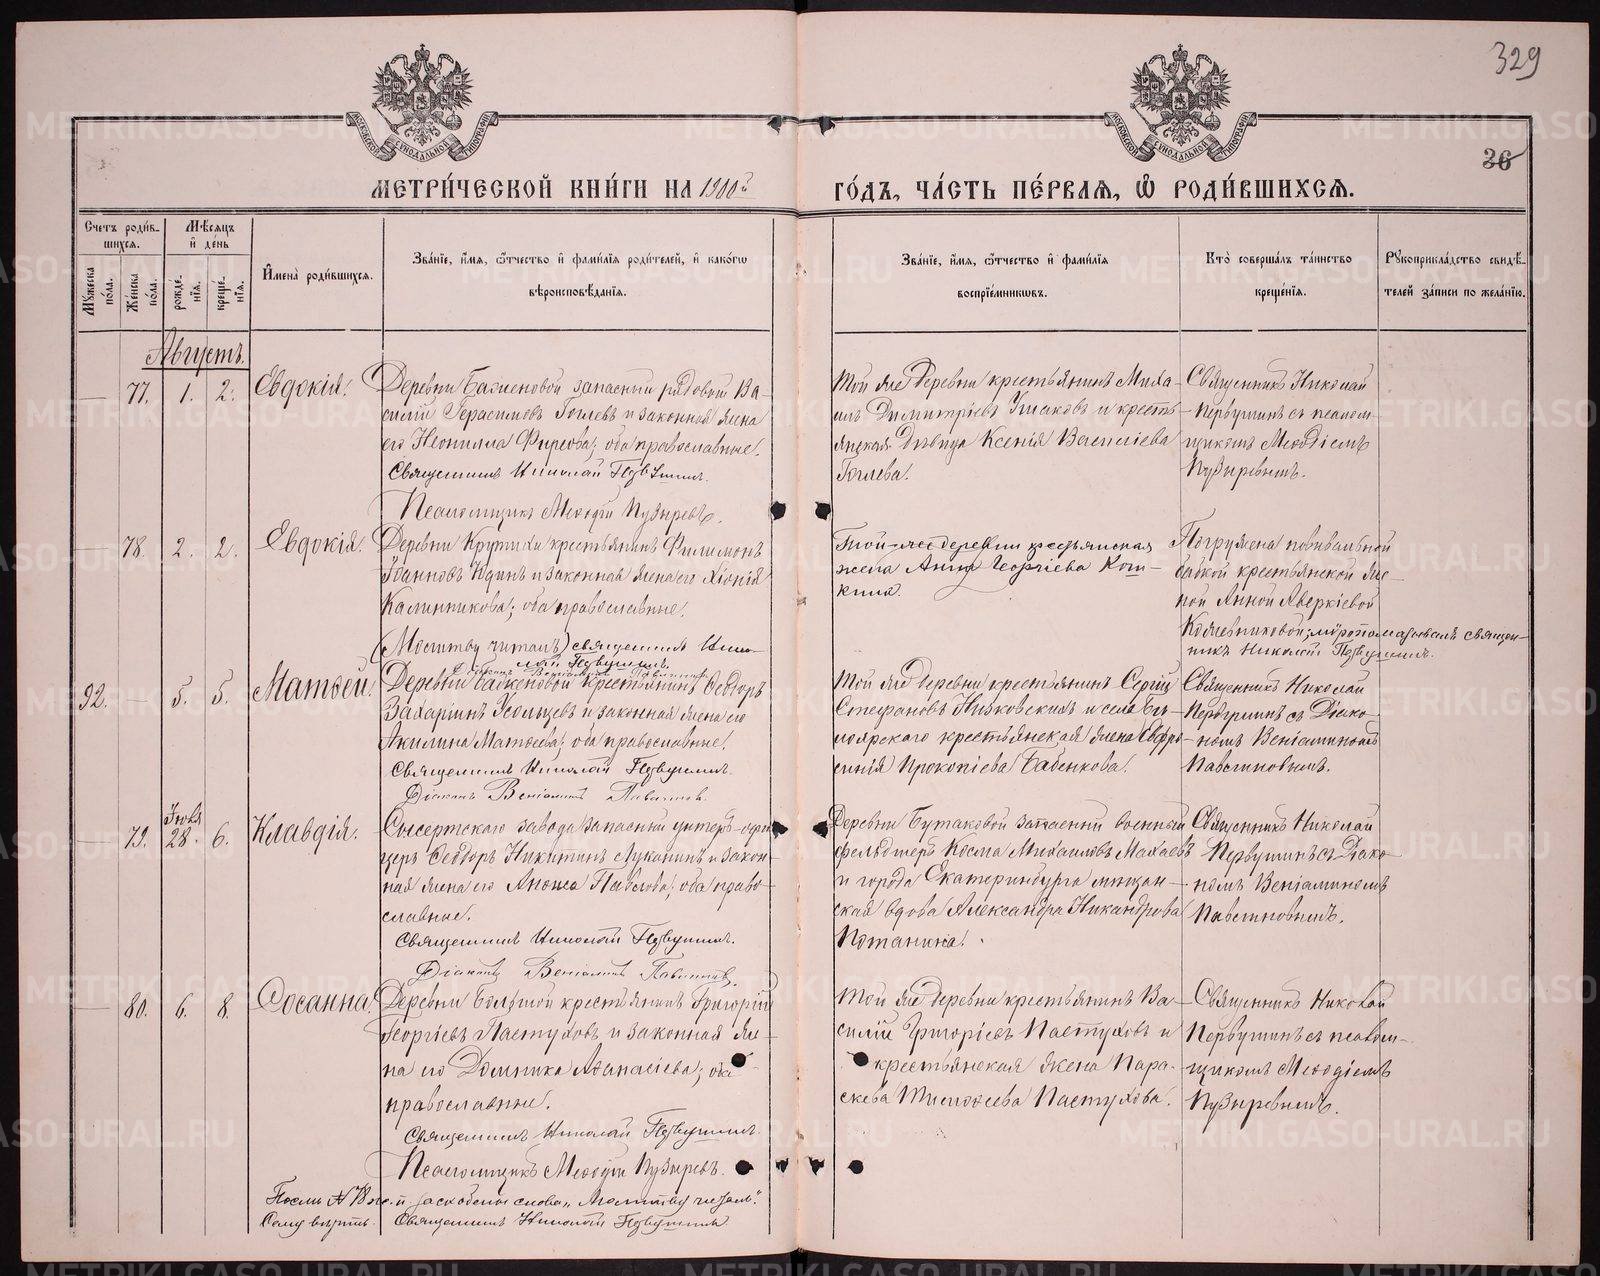 329
36
МОСКОВСКОЙ СѴНОДАЛЬНОЙ ТИПОГРАФІИ
МОСКОВСКОЙ СѴНОДАЛЬНОЙ ТИПОГРАФІИ
МЕТРИ́ЧЕСКОЙ КНИ́ГИ НА 1900й
ГО́ДЪ, ЧА́СТЬ ПЕ́РВАЯ, Ѡ РОДИ́ВШИХСЯ.
Счетъ роди́вшихся.
Мѣсяцъ и де́нь
Мꙋжеска по́ла.
Же́нска по́ла.
рожде́нїя.
креще́нїя.
И҆мена̀ роди́вшихся.
Зва́нїе, и҆́мя, ѻ҆́тчество и҆ фами́лїя роди́телей, и҆ како́гѡ
вѣроисповѣ́данїя.
Зва́нїе, и҆́мя, ѻ҆́тчество и҆ фами́лїя
воспрїе́мникѡвъ.
Кто̀ соверша́лъ та́инство
креще́нїя.
Рꙋкоприкла́дство свидѣ́-
телей за́писи по жела́нїю.
Августъ.
— 77. 1. 2. Евдокія.
Деревни Баженовой запасный рядовой Ва-
силій Герасимовъ Гоглевъ и законная жена
его Неонилла Фирсова; оба православные.
Священникъ Николай Первушинъ.
Псаломщикъ Меѳодій Пузыревъ.
Той же деревни крестьянинъ Миха-
илъ Димитріевъ Ушаковъ и кресть-
янская дѣвица Ксенія Васильева
Гоглева.
Священникъ Николай
Первушинъ съ псалом-
щикомъ Меѳодіемъ
Пузыревымъ.
— 78. 2. 2. Евдокія.
Деревни Крутихи крестьянинъ Филимонъ
Іоанновъ и законная жена его Хіонія
Калинникова; оба православные.
(Молитву читалъ) священникъ Нико-
лай Первушинъ.
Той-же деревни крестьянская
жена Анна Георгіева Кош-
кина.
Погружена повивальной
бабкой крестьянской же-
ной Анной Аверкіевой
Кожевниковой; мѵропомазывалъ священ-
никъ Николай Первушинъ.
92. — 5. 5. Матѳей.
Деревни Баженовой крестьянинъ Ѳеодоръ
Захаріинъ и законная жена его
Акилина Матѳеева; оба православные.
Священникъ Николай Первушинъ.
Діаконъ Веніаминъ Павлиновъ.
Той же деревни крестьянинъ Сергій
Стефановъ Низковскихъ и села Бѣ-
лоярскаго крестьянская жена Евфро-
синія Прокопіева Бабенкова.
Священникъ Николай
Первушинъ съ Діако-
номъ Веніаминомъ
Павлиновымъ.
— 79. Іюля 28. 6. Клавдія.
Сысертскаго завода запасный унтеръ-офи-
церъ Ѳеодоръ Никитинъ Луканинъ и закон-
ная жена его Анна Павлова; оба право-
славные.
Священникъ Николай Первушинъ.
Діаконъ Веніаминъ Павлиновъ.
Деревни Бутаковой запасный военный
фельдшеръ Косма Михаиловъ Махаевъ
и города Екатеринбурга мѣщан-
ская вдова Александра Никандрова
Потанина.
Священникъ Николай
Первушинъ съ Діако-
номъ Веніаминомъ
Павлиновымъ.
— 80. 6. 8. Сосанна.
Деревни Большой крестьянинъ Григорій
Георгіевъ Пастуховъ и законная же-
на его Домника Аѳанасіева; оба
православные.
Священникъ Николай Первушинъ.
Псаломщикъ Меѳодій Пузыревъ.
Той же деревни крестьянинъ Ва-
силій Григоріевъ Пастуховъ и
крестьянская жена Пара-
скева Тимоѳеева Пастухова.
Священникъ Николай
Первушинъ съ псалом-
щикомъ Меѳодіемъ
Пузыревымъ.
слова „Молитву читалъ".
Священникъ Николай Первушинъ
METRIKI.GASO-URAL.RU